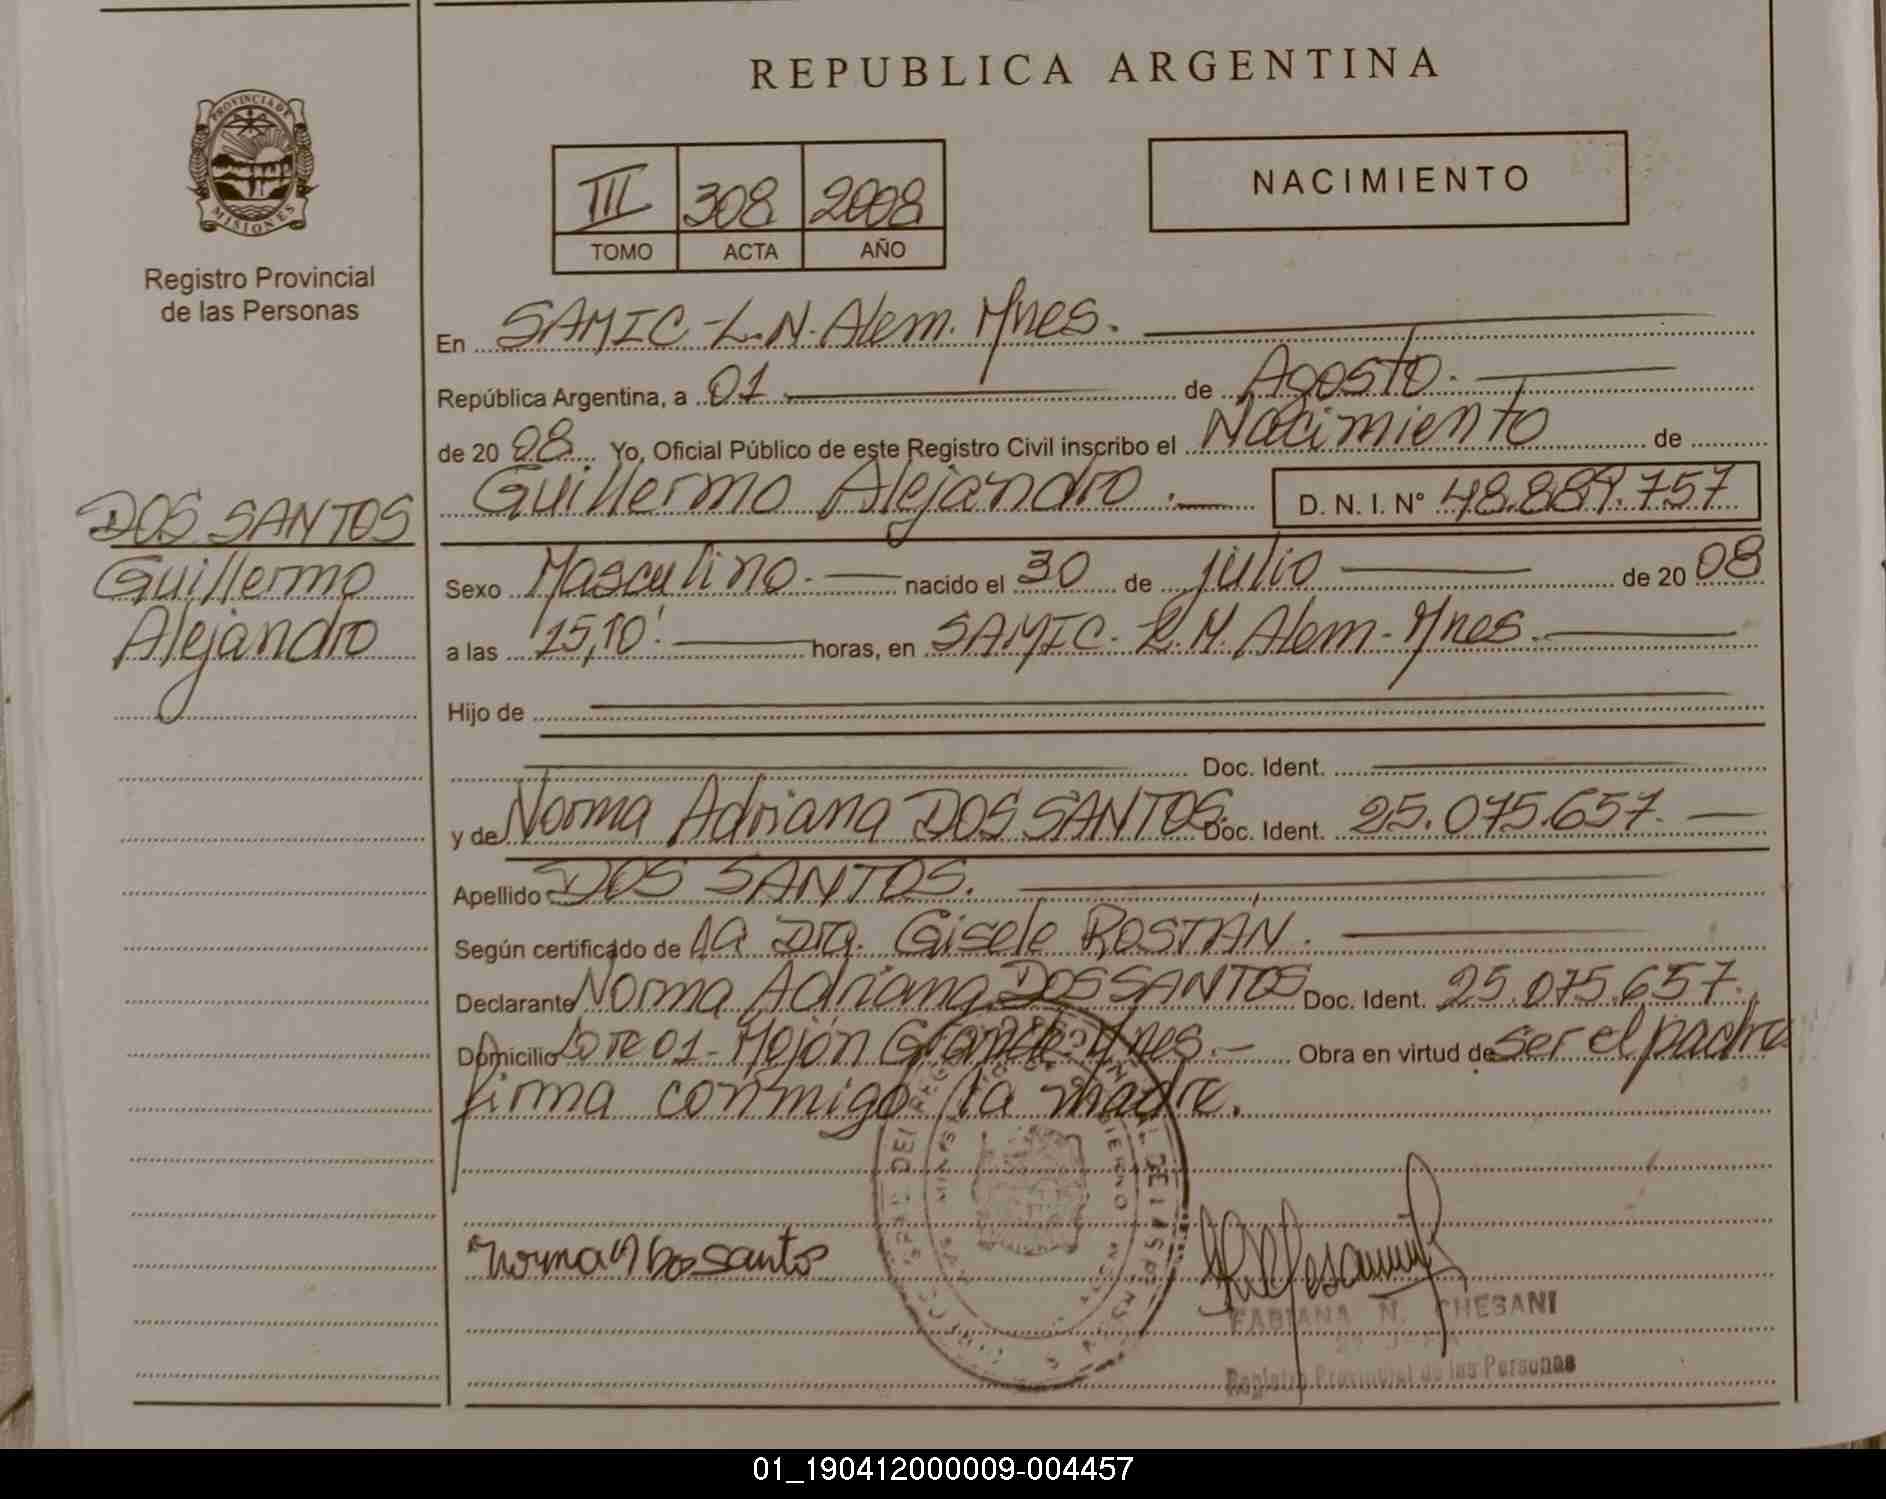 REPUBLICA ARGENTINA
PROVINCIA DE
MISIONES
Registro Provincial
de las Personas
III 308 2008
TOMO ACTA AÑO
NACIMIENTO
En SAMIC - L.N. Alem. Mnes.
República Argentina, a 01 de Agosto.
de 20 08. Yo, Oficial Público de este Registro Civil inscribo el Nacimiento de
Guillermo Alejandro. D. N. I. N° 48.889.757
DOS SANTOS
Guillermo
Alejandro
Sexo Masculino. nacido el 30 de julio de 20 08
a las 15,10' horas, en SAMIC. L.N. Alem - Mnes.
Hijo de
Doc. Ident.
y de Norma Adriana DOS SANTOS. Doc. Ident. 25.075.657.
Apellido DOS SANTOS.
Según certificado de la Dra. Gisele ROSTÁN.
Declarante Norma Adriana DOS SANTOS Doc. Ident. 25.075.657.
Domicilio Lote 01 - Mojón Grande - Mnes. - Obra en virtud de ser el padre
firma conmigo la madre.
FABIANA N. CHESANI
Registro Provincial de las Personas
01_190412000009-004457